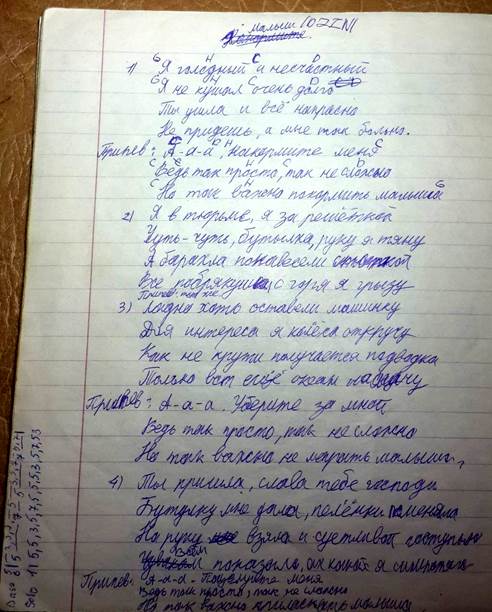 малыш /OZZIN/
1) Я голодный и несчастный
Я не кушал очень долго
Ты ушла и всё напрасно
Не придешь, а мне так больно.
Припев: А-а-а, накормите меня
Ведь так просто, так не сложно
Но так важно покормить малыша
2) Я в тюрьме, я за решёткой
Чуть-чуть, бутылка, руку я тяну
А барахла понавесели
Все побрякушки с горя я грызу
Припев: тот же
3) Ладно хоть оставели машинку
Для интереса я колёса откручу
Как не крути получается подводка
Только вот ещё океан
Припев: А-а-а. Уберите за мной
Ведь так просто, так не сложно
Но так важно не марать малыша,
4) Ты пришла, слава тебе господи
Бутылку мне дала, пелёнки поменяла
На руки взяла и суетливой
всем показала, ах какой я симпотяга
Припев: А-а-а - Поцелуйте меня
Ведь так просто, так не сложно
Но так важно приласкать малыша